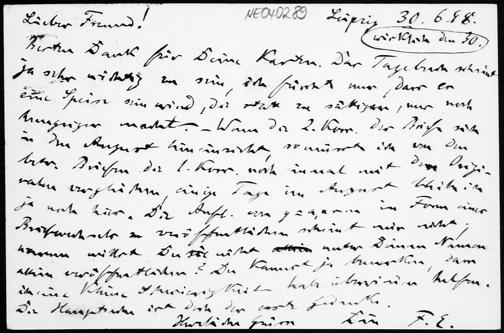 NE040289
Lieber Freund! Leipzig 30.6.48.
wirklich den 30.
Besten Dank für Deine Karten. Der Tagebuch scheint
ja sehr wichtig zu sein, ich fürchte nur, dass er
eine Speise sein wird, die statt zu sättigen, nur noch
hungriger macht. – Wenn die 2. Korr. der Briefe sich
in den August hineinzieht, so müsste ich von den
betr. Briefen die 1. Korr. noch einmal mit den Origi-
nalen vergleichen, einige Tage im August bleibe ich
ja noch hier. Die Aufl. in Form eines
Briefwechsels zu veröffentlichen scheint mir nicht,
warum willst Du nicht unter Deinem Namen
allein veröffentlichen? Du kannst ja bemerken, dass
ich eine kleine Schwierigkeit habe überwinden helfen.
Die Hauptsache ist doch der erste Gedanke.
Herzliche Grüsse Dein F. E.